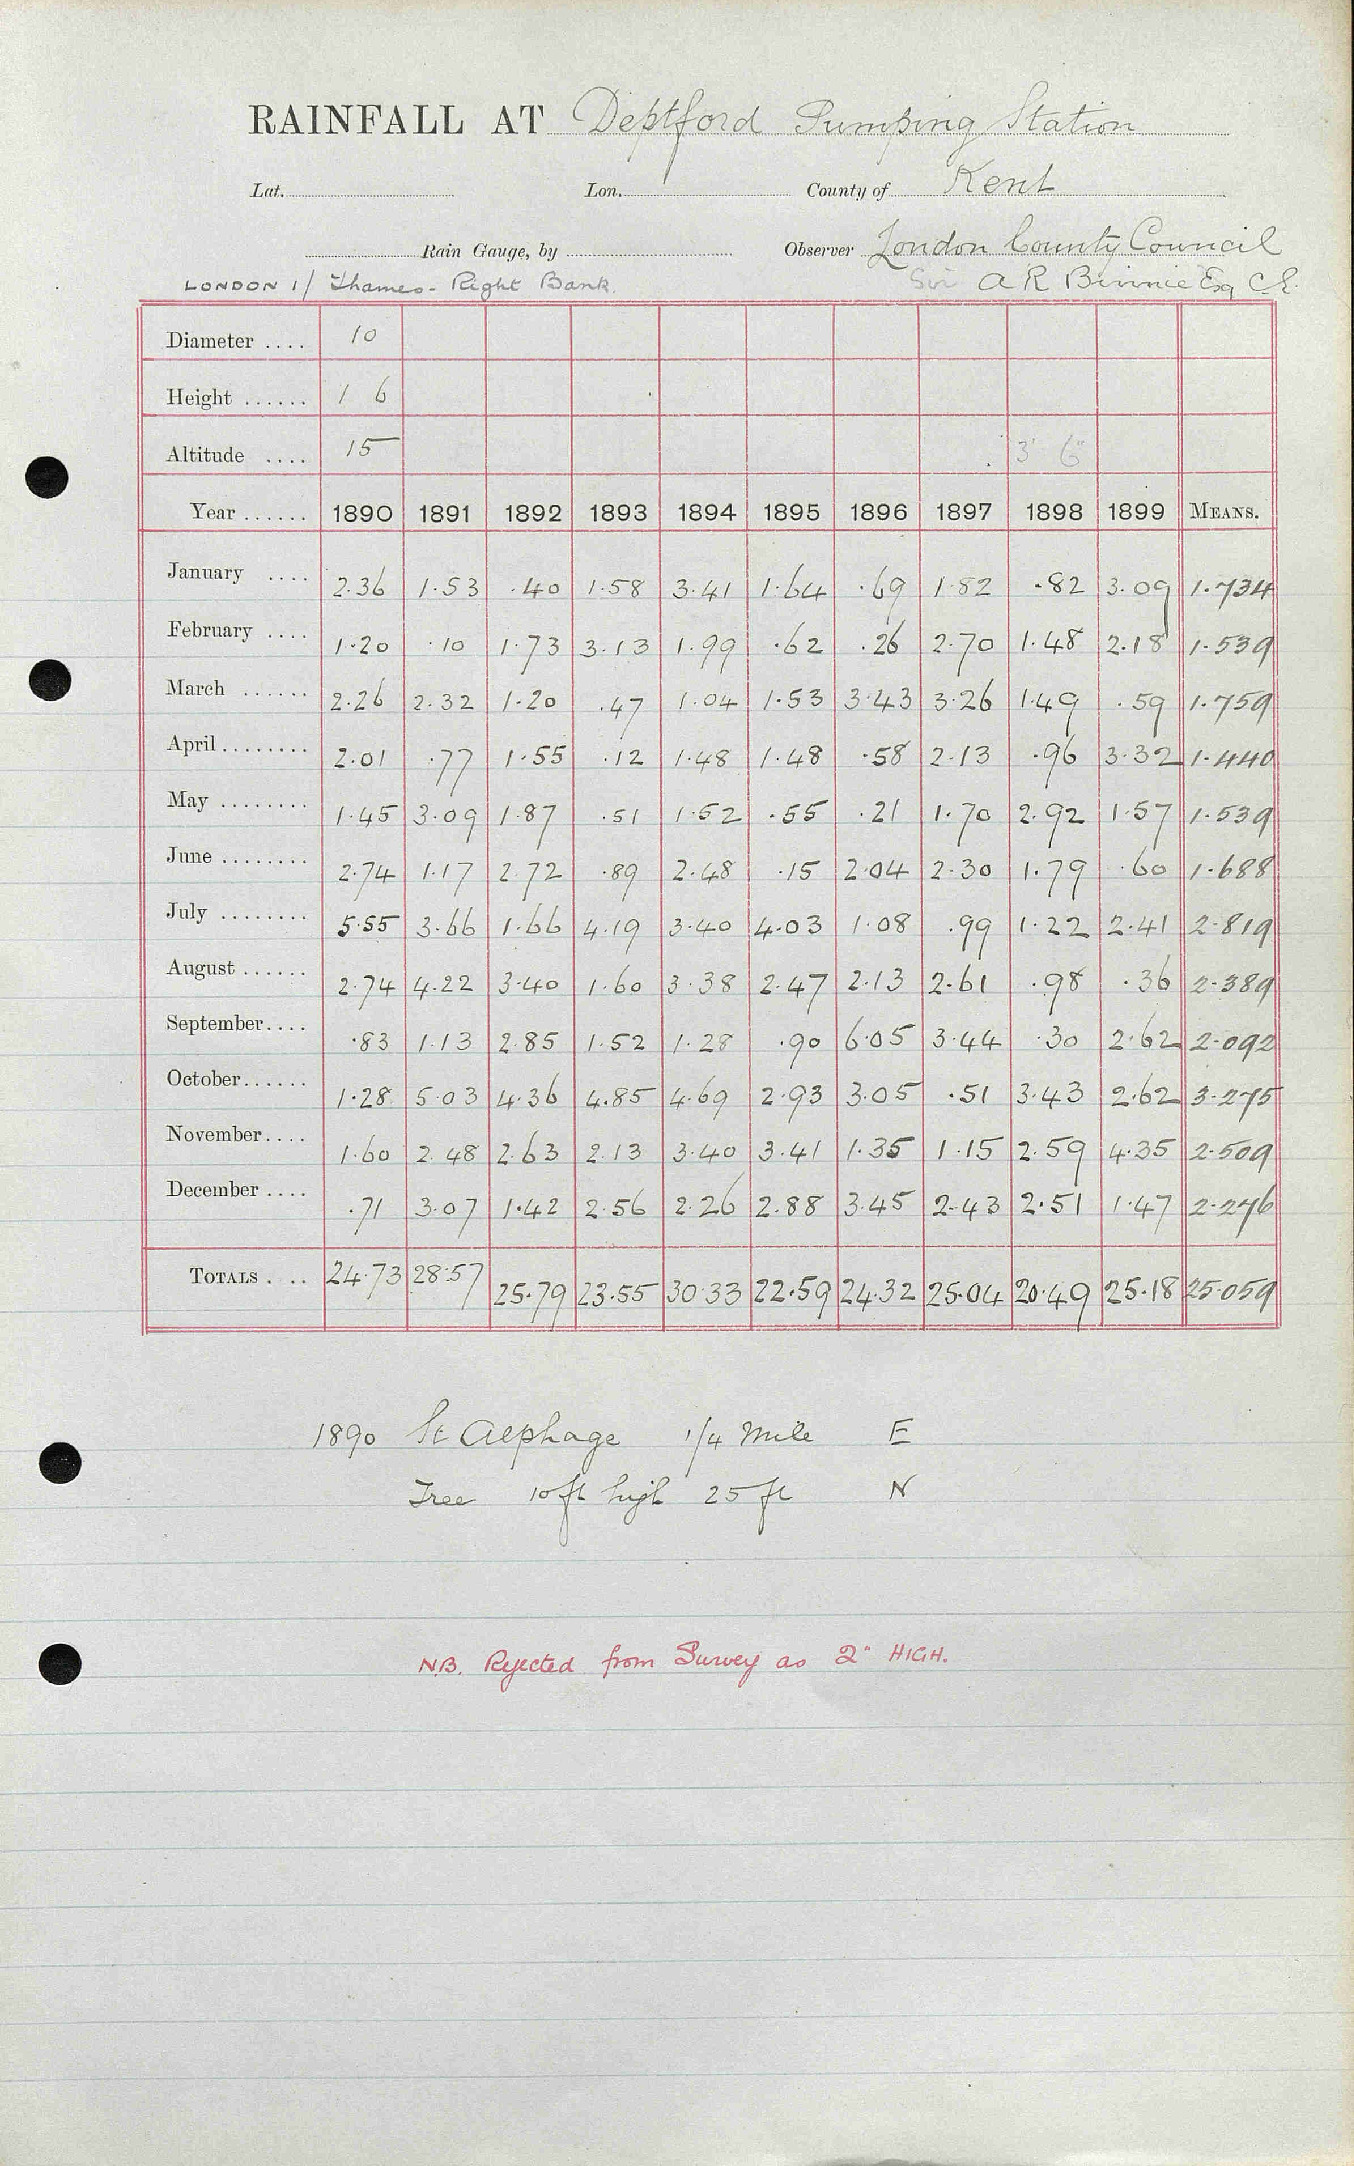 RAINFALL AT Deptford Pumping Station
Lat. Lon. County of Kent
Rain Gauge, by Observer London County Council
LONDON 1/ Thames - Right Bank. Sir A R Binnie Esq C.E.
Diameter .... 10
Height ...... 1 6
Altitude .... 15 3' 6"
Year ...... 1890 1891 1892 1893 1894 1895 1896 1897 1898 1899 MEANS.
January .... 2.36 1.53 .40 1.58 3.41 1.64 .69 1.82 .82 3.09 1.734
February .... 1.20 .10 1.73 3.13 1.99 .62 .26 2.70 1.48 2.18 1.539
March ...... 2.26 2.32 1.20 .47 1.04 1.53 3.43 3.26 1.49 .59 1.759
April ........ 2.01 .77 1.55 .12 1.48 1.48 .58 2.13 .96 3.32 1.440
May ........ 1.45 3.09 1.87 .51 1.52 .55 .21 1.70 2.92 1.57 1.539
June ........ 2.74 1.17 2.72 .89 2.48 .15 2.04 2.30 1.79 .60 1.688
July ........ 5.55 3.66 1.66 4.19 3.40 4.03 1.08 .99 1.22 2.41 2.819
August ...... 2.74 4.22 3.40 1.60 3.38 2.47 2.13 2.61 .98 .36 2.389
September .... .83 1.13 2.85 1.52 1.28 .90 6.05 3.44 .30 2.62 2.092
October ...... 1.28 5.03 4.36 4.85 4.69 2.93 3.05 .51 3.43 2.62 3.275
November .... 1.60 2.48 2.63 2.13 3.40 3.41 1.35 1.15 2.59 4.35 2.509
December .... .71 3.07 1.42 2.56 2.26 2.88 3.45 2.43 2.51 1.47 2.276
TOTALS .... 24.73 28.57 25.79 23.55 30.33 22.59 24.32 25.04 20.49 25.18 25.059
1890 St Alphage 1/4 Mile E
Tree 10 ft high 25 ft N
N.B. Rejected from Survey as 2" HIGH.